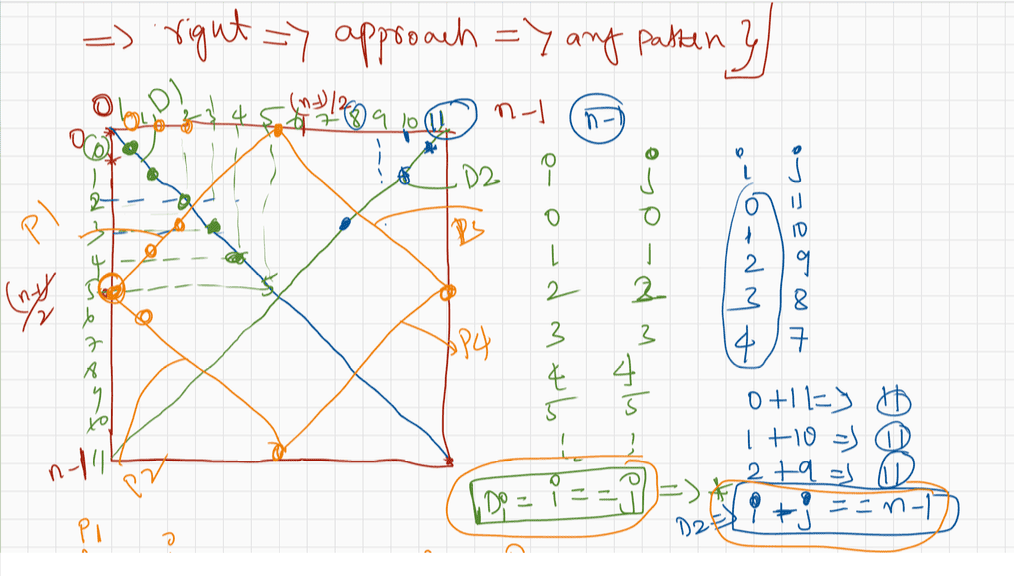 => right => approach => any patten }
0 1 D1 2 3 4 5 6 (n-1)/2 7 8 9 10 11 n-1 n-1
0
0
1
2
3
4
5
6
7
8
9
10
n-1 11
P1
(n-1)/2
D2
P3
P4
P2
i j
0 0
1 1
2 2
3 3
4 4
5 5
i j
i j
0 11
1 10
2 9
3 8
4 7
0 + 11 => 11
1 + 10 => 11
2 + 9 => 11
D1 = i == j => *
D2 => i + j == n-1
P1